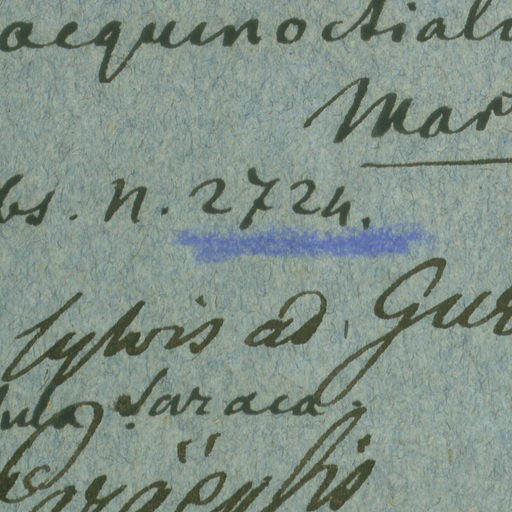 aequinoctial
Mar
bs. N. 2724.
Sylvis ad Gua
Saraca.